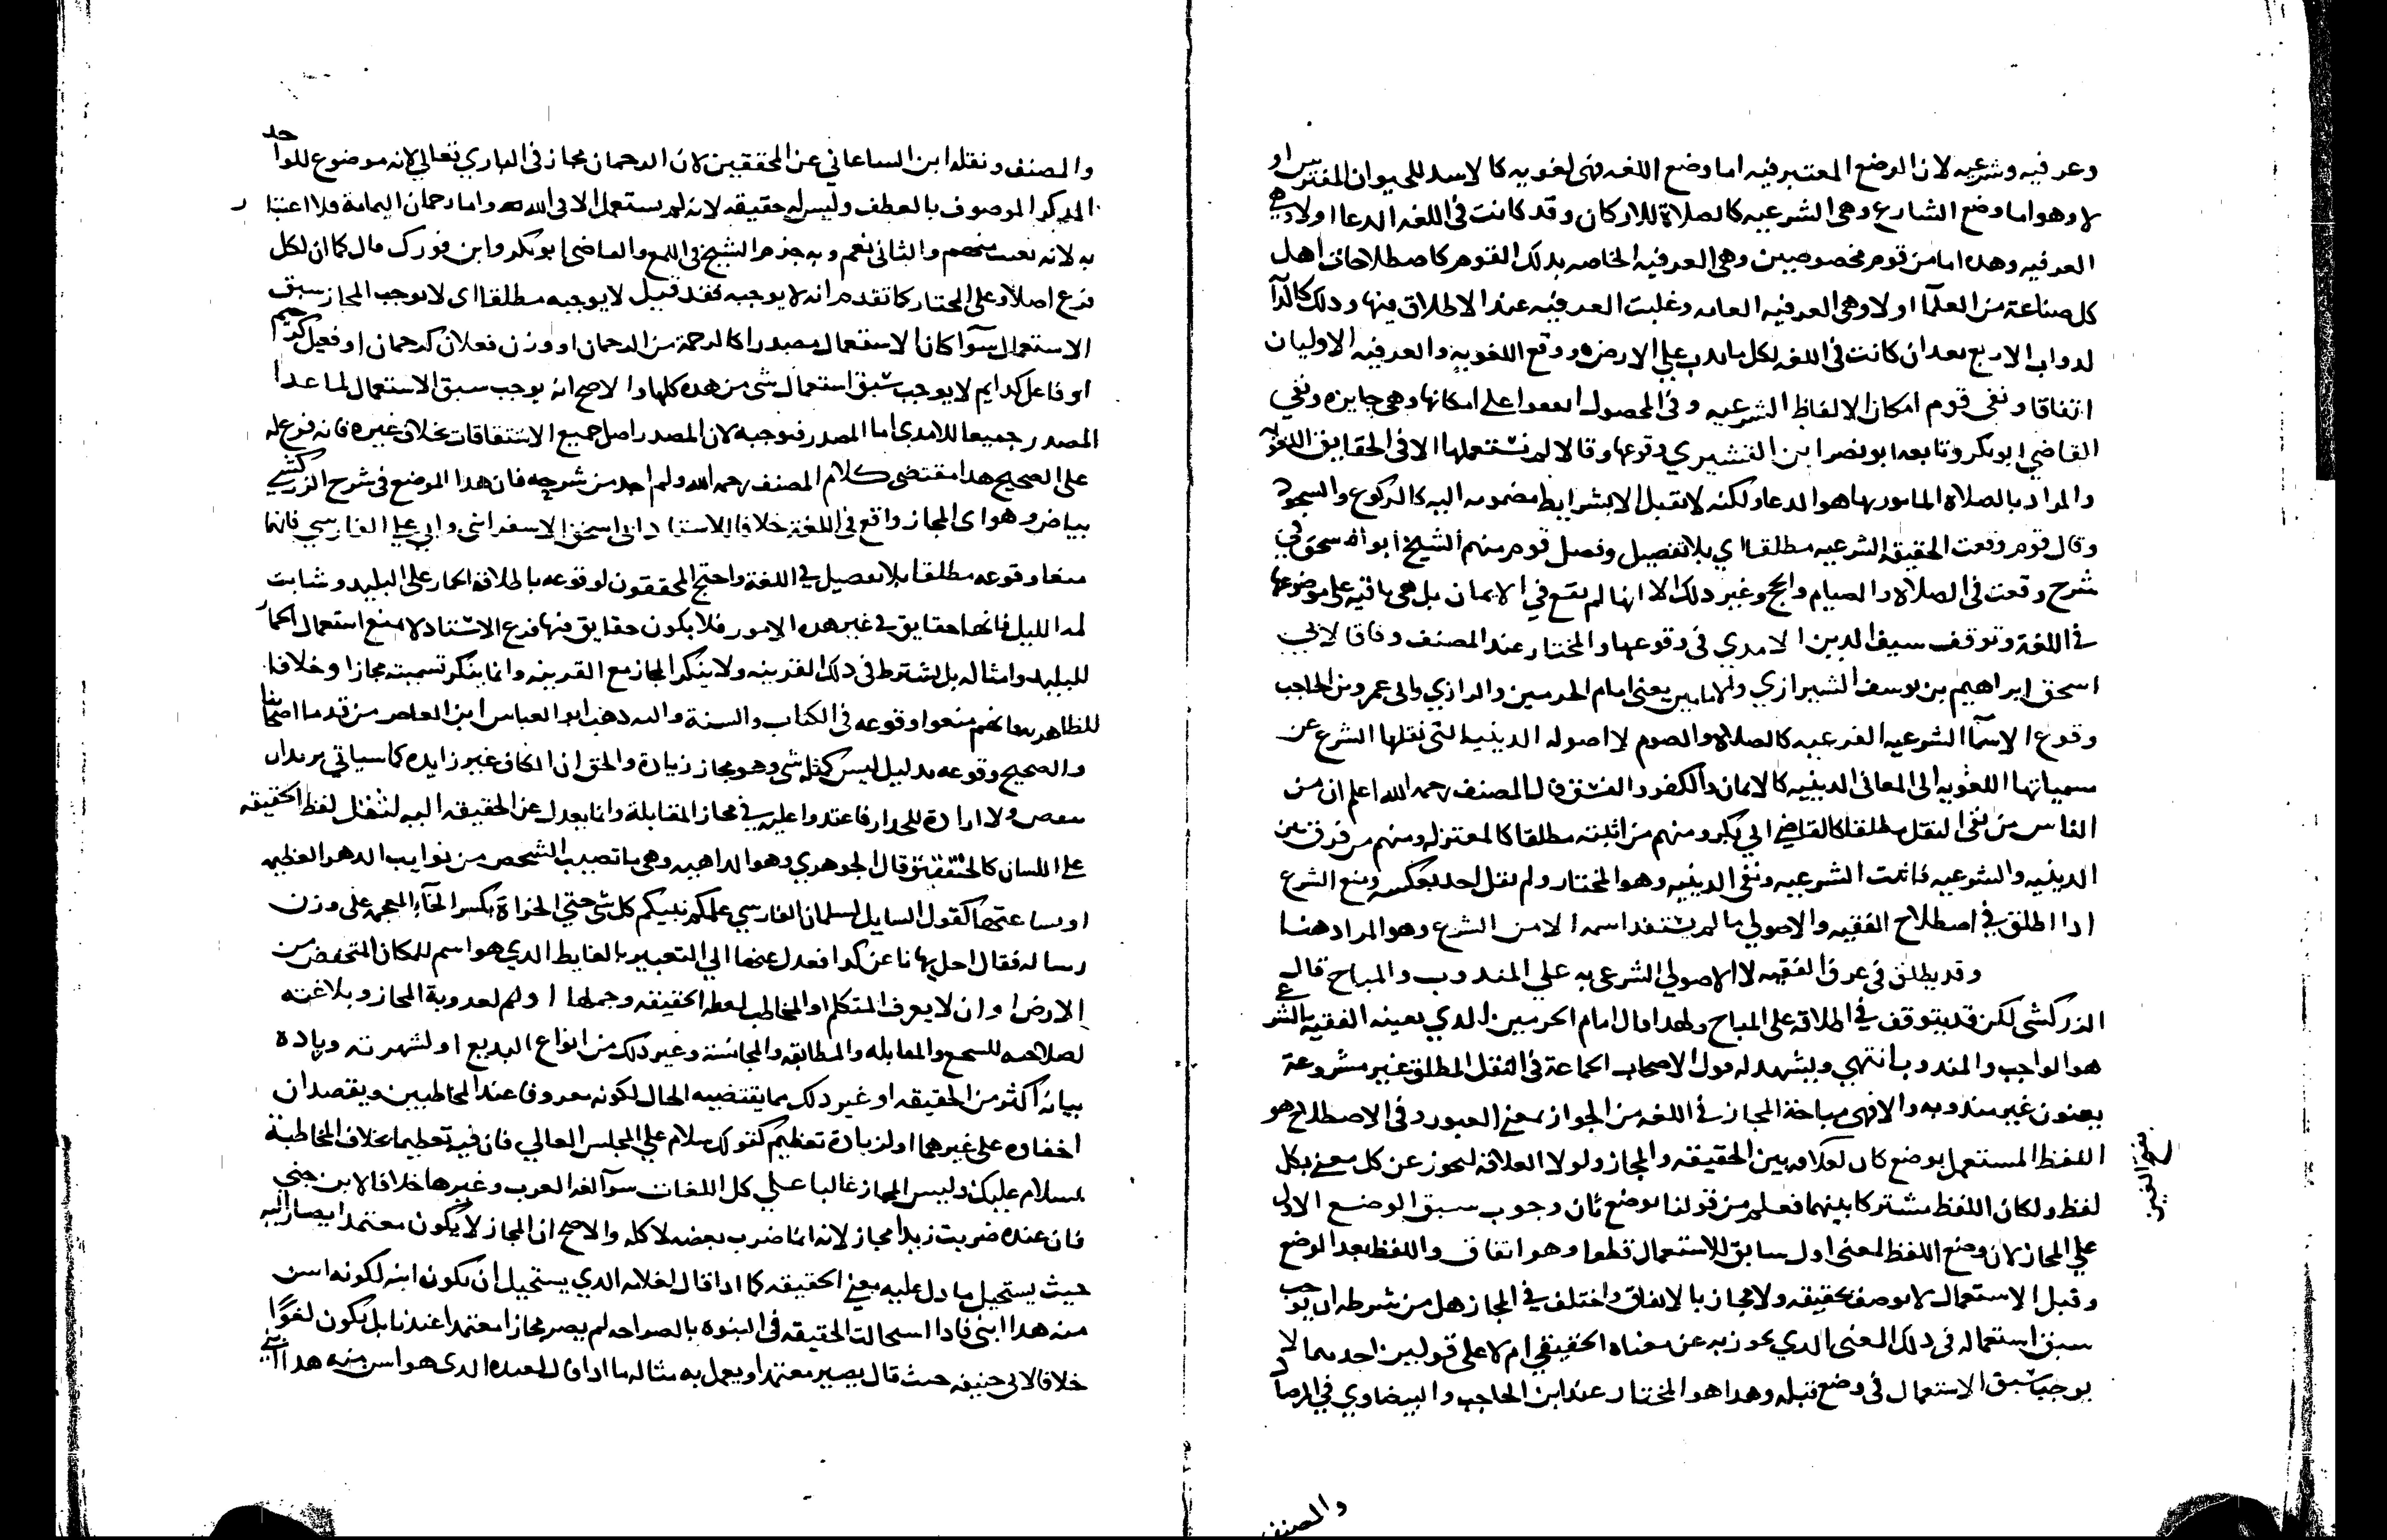 وعرفيه وشرعيه لان الوضع المعتبر فيه اما وضع اللغه فهى لغويه كالاسد للحيوان المفترس او
لا وهو اما وضع الشارع وهى الشرعيه كالصلاة للاركان وقد كانت فى اللغه الدعا اولا وهى
العرفيه وهذه اما من قوم مخصوصين وهى العرفيه الخاصه بذلك القوم كاصطلاحات اهل
كل صناعة من العلمآ اولا وهى العرفيه العامه وغلبت العرفيه عند الاطلاق فيها وذلك كالدآ
لدواب الاربع بعد ان كانت فى اللغه لكل ما يدب على الارض ووقع اللغويه والعرفيه الاوليان
اتفاقا ونفى قوم امكان الالفاظ الشرعيه وفى المحصول اتفقوا على امكانها وهى جايزه ونفى
القاضي ابو بكر وتابعه ابو نصر ابن القشيري وقوعها وقالا لم نستعملها الا فى الحقايق اللغويه
والمراد بالصلاة المامور بها هو الدعا ولكنه لا تقبل الا بشرايط مضمومه اليه كالركوع والسجود
وقال قوم وقعت الحقيقه الشرعيه مطلقا اي بلا تفصيل وفصل قوم منهم الشيخ ابو اسحق في
شرح وقعت فى الصلاه والصيام والحج وغير ذلك الا انها لم تقع في الايمان بل هى باقيه على موضوعها
في اللغة وتوقف سيف الدين الامدي فى وقوعها والمختار عند المصنف وفاقا لابي
اسحق ابراهيم بن يوسف الشيرازي والامامين يعنى امام الحرمين والرازي وابى عمرو بن الحاجب
وقوع الاسمآ الشرعيه الفرعيه كالصلاه والصوم لا اصوله الدينيه التى نقلها الشرع عن
مسمياتها اللغويه الى المعانى الدينيه كالايمان والكفر والفسق قال المصنف رحمه الله اعلم ان من
الناس من نفى النقل مطلقا كالقاضي ابي بكر ومنهم من اثبته مطلقا كالمعتزله ومنهم من فرق بين
الدينيه والشرعيه فاثبت الشرعيه ونفى الدينيه وهو المختار ولم يقل احد بعكسه ومنع الشرع
اذا اطلق في اصطلاح الفقيه والاصولي ما لم يستفد اسمه الا من الشرع وهو المراد هنا
وقد يطلق فى عرف الفقيه لا الاصولي الشرعى به علي المندوب والمباح قال
الزركشى لكن قد يتوقف في اطلاقه على المباح ولهذا قال امام الحرمين الذي يعنيه الفقيه بالشرع
هو الواجب والمندوب انتهي ويشهد له قول الاصحاب الجماعة فى النفل المطلق غير مشروعة
يعنون غير مندوبه والا فهى مباحة المجاز في اللغه من الجواز بمعنى العبور وفى الاصطلاح هو
اللفظ المستعمل بوضع ثان لعلاقه بين الحقيقه والمجاز ولولا العلاقه لتجوز عن كل معنى بكل
لفظ ولكان اللفظ مشتركا بينهما فعلم من قولنا بوضع ثان وجوب سبق الوضع الاول
علي المجاز لان وضع اللفظ لمعنى اول سابق للاستعمال قطعا وهو اتفاق واللفظ بعد الوضع
وقبل الاستعمال لا يوصف بحقيقه ولا مجاز بالاتفاق واختلف في المجاز هل من شرطه ان يوجب
سبق استعماله فى ذلك المعنى الذي تجوز به عن معناه الحقيقي ام لا على قولين احدهما لا
يوجب سبق الاستعمال فى وضع قبله وهذا هو المختار عند ابن الحاجب والبيضاوي في المرصاد
بفتح الغين
والمصنف
والمصنف ونقله ابن الساعاتي عن المحققين لان الرحمان مجاز فى الباري تعالي لانه موضوع للواحد
المذكر الموصوف بالعطف وليس له حقيقه لانه لم يستعمل الا في الله واما رحمان اليمامة فلا اعتبار
به لانه تعنت منهم والثانى نعم وبه جزم الشيخ فى اللمع والقاضى ابو بكر وابن فورك قال كما ان لكل
فرع اصلا وعلى المختار كما تقدم انه لا يوجبه فقد قيل لا يوجبه مطلقا اى لا يوجب المجاز سبق
الاستعمال سوآ كان الاستعمال مصدرا كالرحمة من الرحمان او وزن فعلان كرحمان او فعيل كرحيم
او فاعل كدايم لا يوجب سبق استعمال شى من هذه كلها والاصح انه يوجب سبق الاستعمال لما عدا
المصدر جميعا للامدى اما المصدر فنوجبه لان المصدر اصل جميع الاشتقاقات بخلاف غيره فانه فرع له
على الصحيح هذا مقتضى كلام المصنف رحمه الله ولم احد من شرحه فان هذا الموضع فى شرح الزركشي
بياض وهو اى المجاز واقع فى اللغة خلافا للاستاد ابى اسحق الاسفراينى وابي علي الفارسي فانهما
منعا وقوعه مطلقا بلا تفصيل في اللغة واحتج المحققون لوقوعه باطلاق الحمار على البليد وشابت
لمة الليل فانها حقايق في غير هذه الامور فلا يكون حقايق فيها فرع الاستاد لا يمنع استعمال الحمار
للبليد وامثاله بل يشترط فى ذلك القرينه ولا ينكر المجاز مع القرينه وانما ينكر تسميته مجازا وخلافا
للظاهريه فانهم منعوا وقوعه فى الكتاب والسنة واليه ذهب ابو العباس ابن القاص من قدما اصحابنا
والصحيح وقوعه بدليل ليس كمثله شى وهو مجاز زيادة والحق ان الكاف غير زايده كما سياتي يريد ان
ينقض ولا ارادة للجدار فاعتدوا عليه في مجاز المقابلة وانما يعدل عن الحقيقه اليه لثقل لفظ الحقيقه
علي اللسان كالخنفقيق قال الجوهري وهو الداهيه وهى ما تصيب الشخص من نوايب الدهر العظيمه
او بشاعتها كقول السايل لسلمان الفارسي علمكم نبيكم كل شى حتى الخراة بكسر الخآء المعجمه على وزن
رساله فقال اجل نهانا عن كذا فعدل عنها الي التعبير بالغايط الذي هو اسم للمكان المنخفض من
الارض او ان لا يعرف المتكلم او المخاطب لفظ الحقيقه وجهلها او لعذوبة المجاز وبلاغته
لصلاحه للسجع والمقابله والمطابقه والمجانسة وغير ذلك من انواع البديع او لشهرته وزيادة
بيانه اكثر من الحقيقه او غير ذلك مما يقتضيه الحال لكونه معروفا عند المخاطبين ويقصد ان
اخفاوه على غيرهما او لزيادة تعظيم كقولك سلام علي المجلس العالي فان فيه تعظيما بخلاف المخاطبة
بسلام عليك وليس المجاز غالبا علي كل اللغات سوآ لغه العرب وغيرها خلافا لابن جنى
فان عنده ضربت زيدا مجاز لانه انما ضرب بعضه لا كله والاصح ان المجاز لا يكون معتمدا يصار اليه
حيث يستحيل ما دل عليه معنى الحقيقه كما اذا قال لغلامه الذي يستحيل ان يكون ابنه لكونه اسن
منه هذا ابنى فاذا استحالت الحقيقه فى البنوه بالصراحه لم يصر مجازا معتمدا عندنا بل يكون لغوًا
خلافا لابى حنيفه حيث قال يصير معتمدا ويعمل به مثاله ما اذا قال لعبده الذى هو اسن منه هذا ابنى